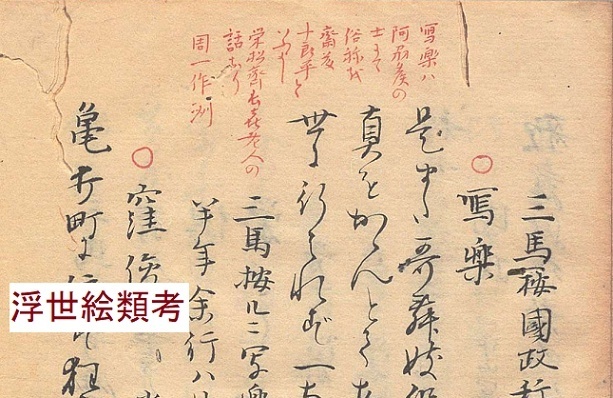 三馬按國政
○
寫楽
是また哥舞妓役
真をかゝんとてあ
世に行はれず一
三馬按
半年余行ハ
○
窪俊
亀井町に住
寫楽ハ
阿州矦の
士にて
俗称を
斎藤
十良平と
いふよし
栄松斎長喜老人の
話なり
周一作洲
浮世絵類考